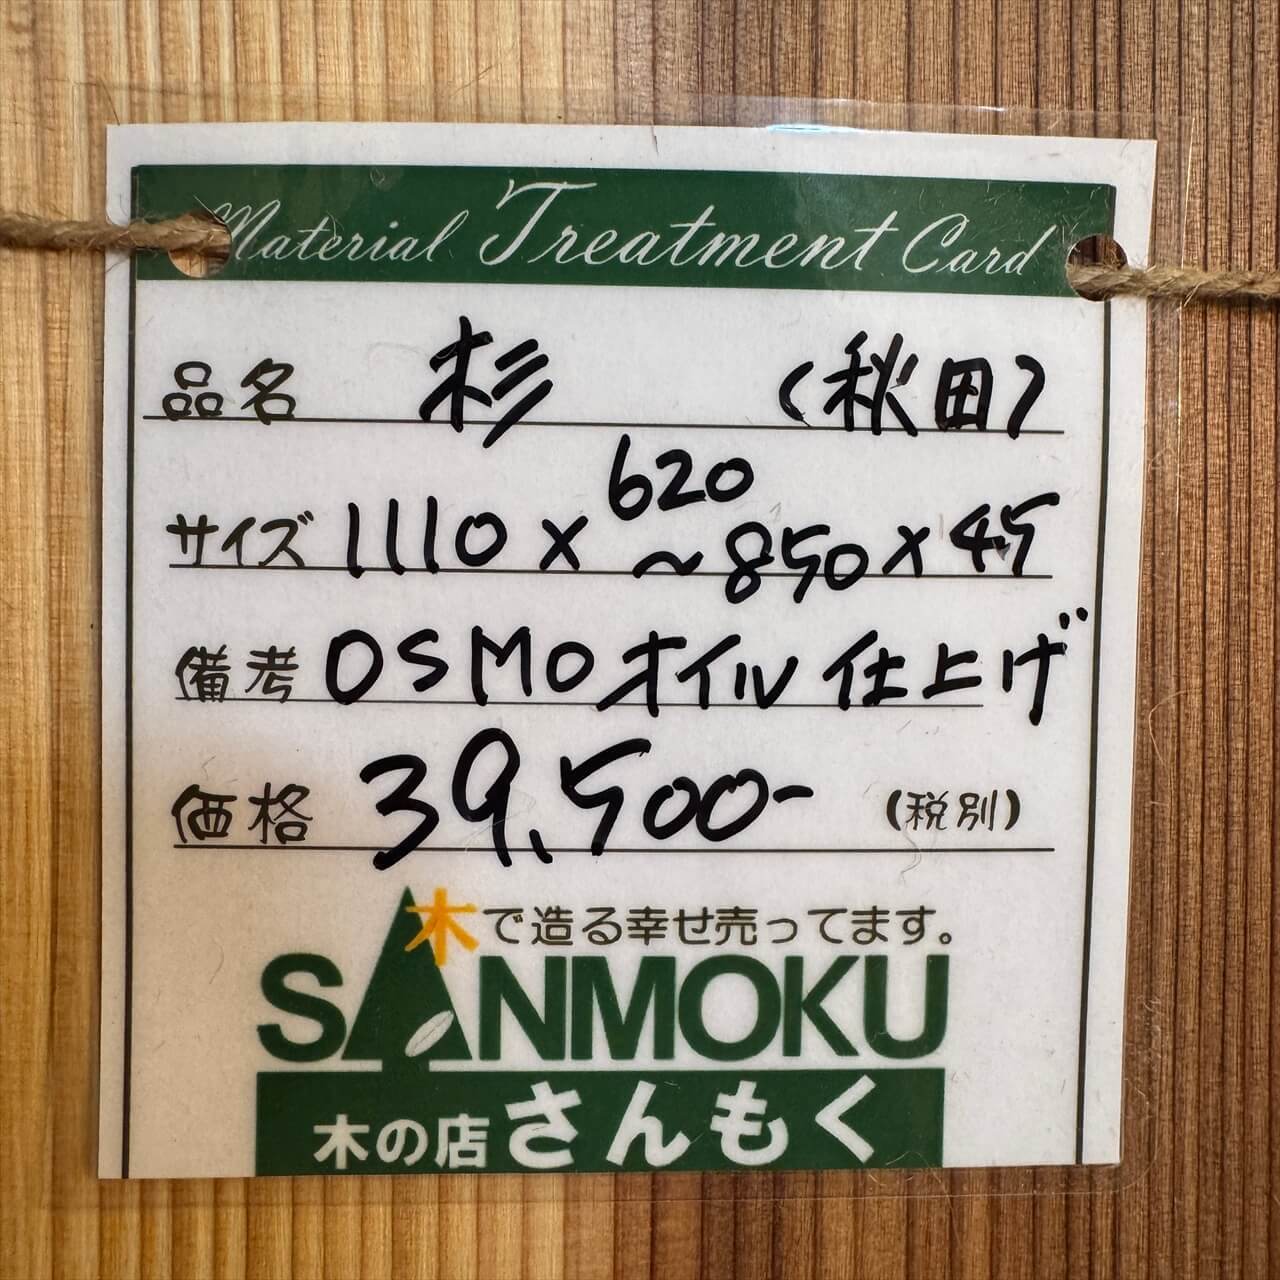 Material Treatment Card
品名 杉 (秋田)
サイズ 1110 × 620 ~850 × 45
備考 OSMOオイル仕上げ
価格 39,500- (税別)
木で造る幸せ売ってます。
SANMOKU
木の店さんもく